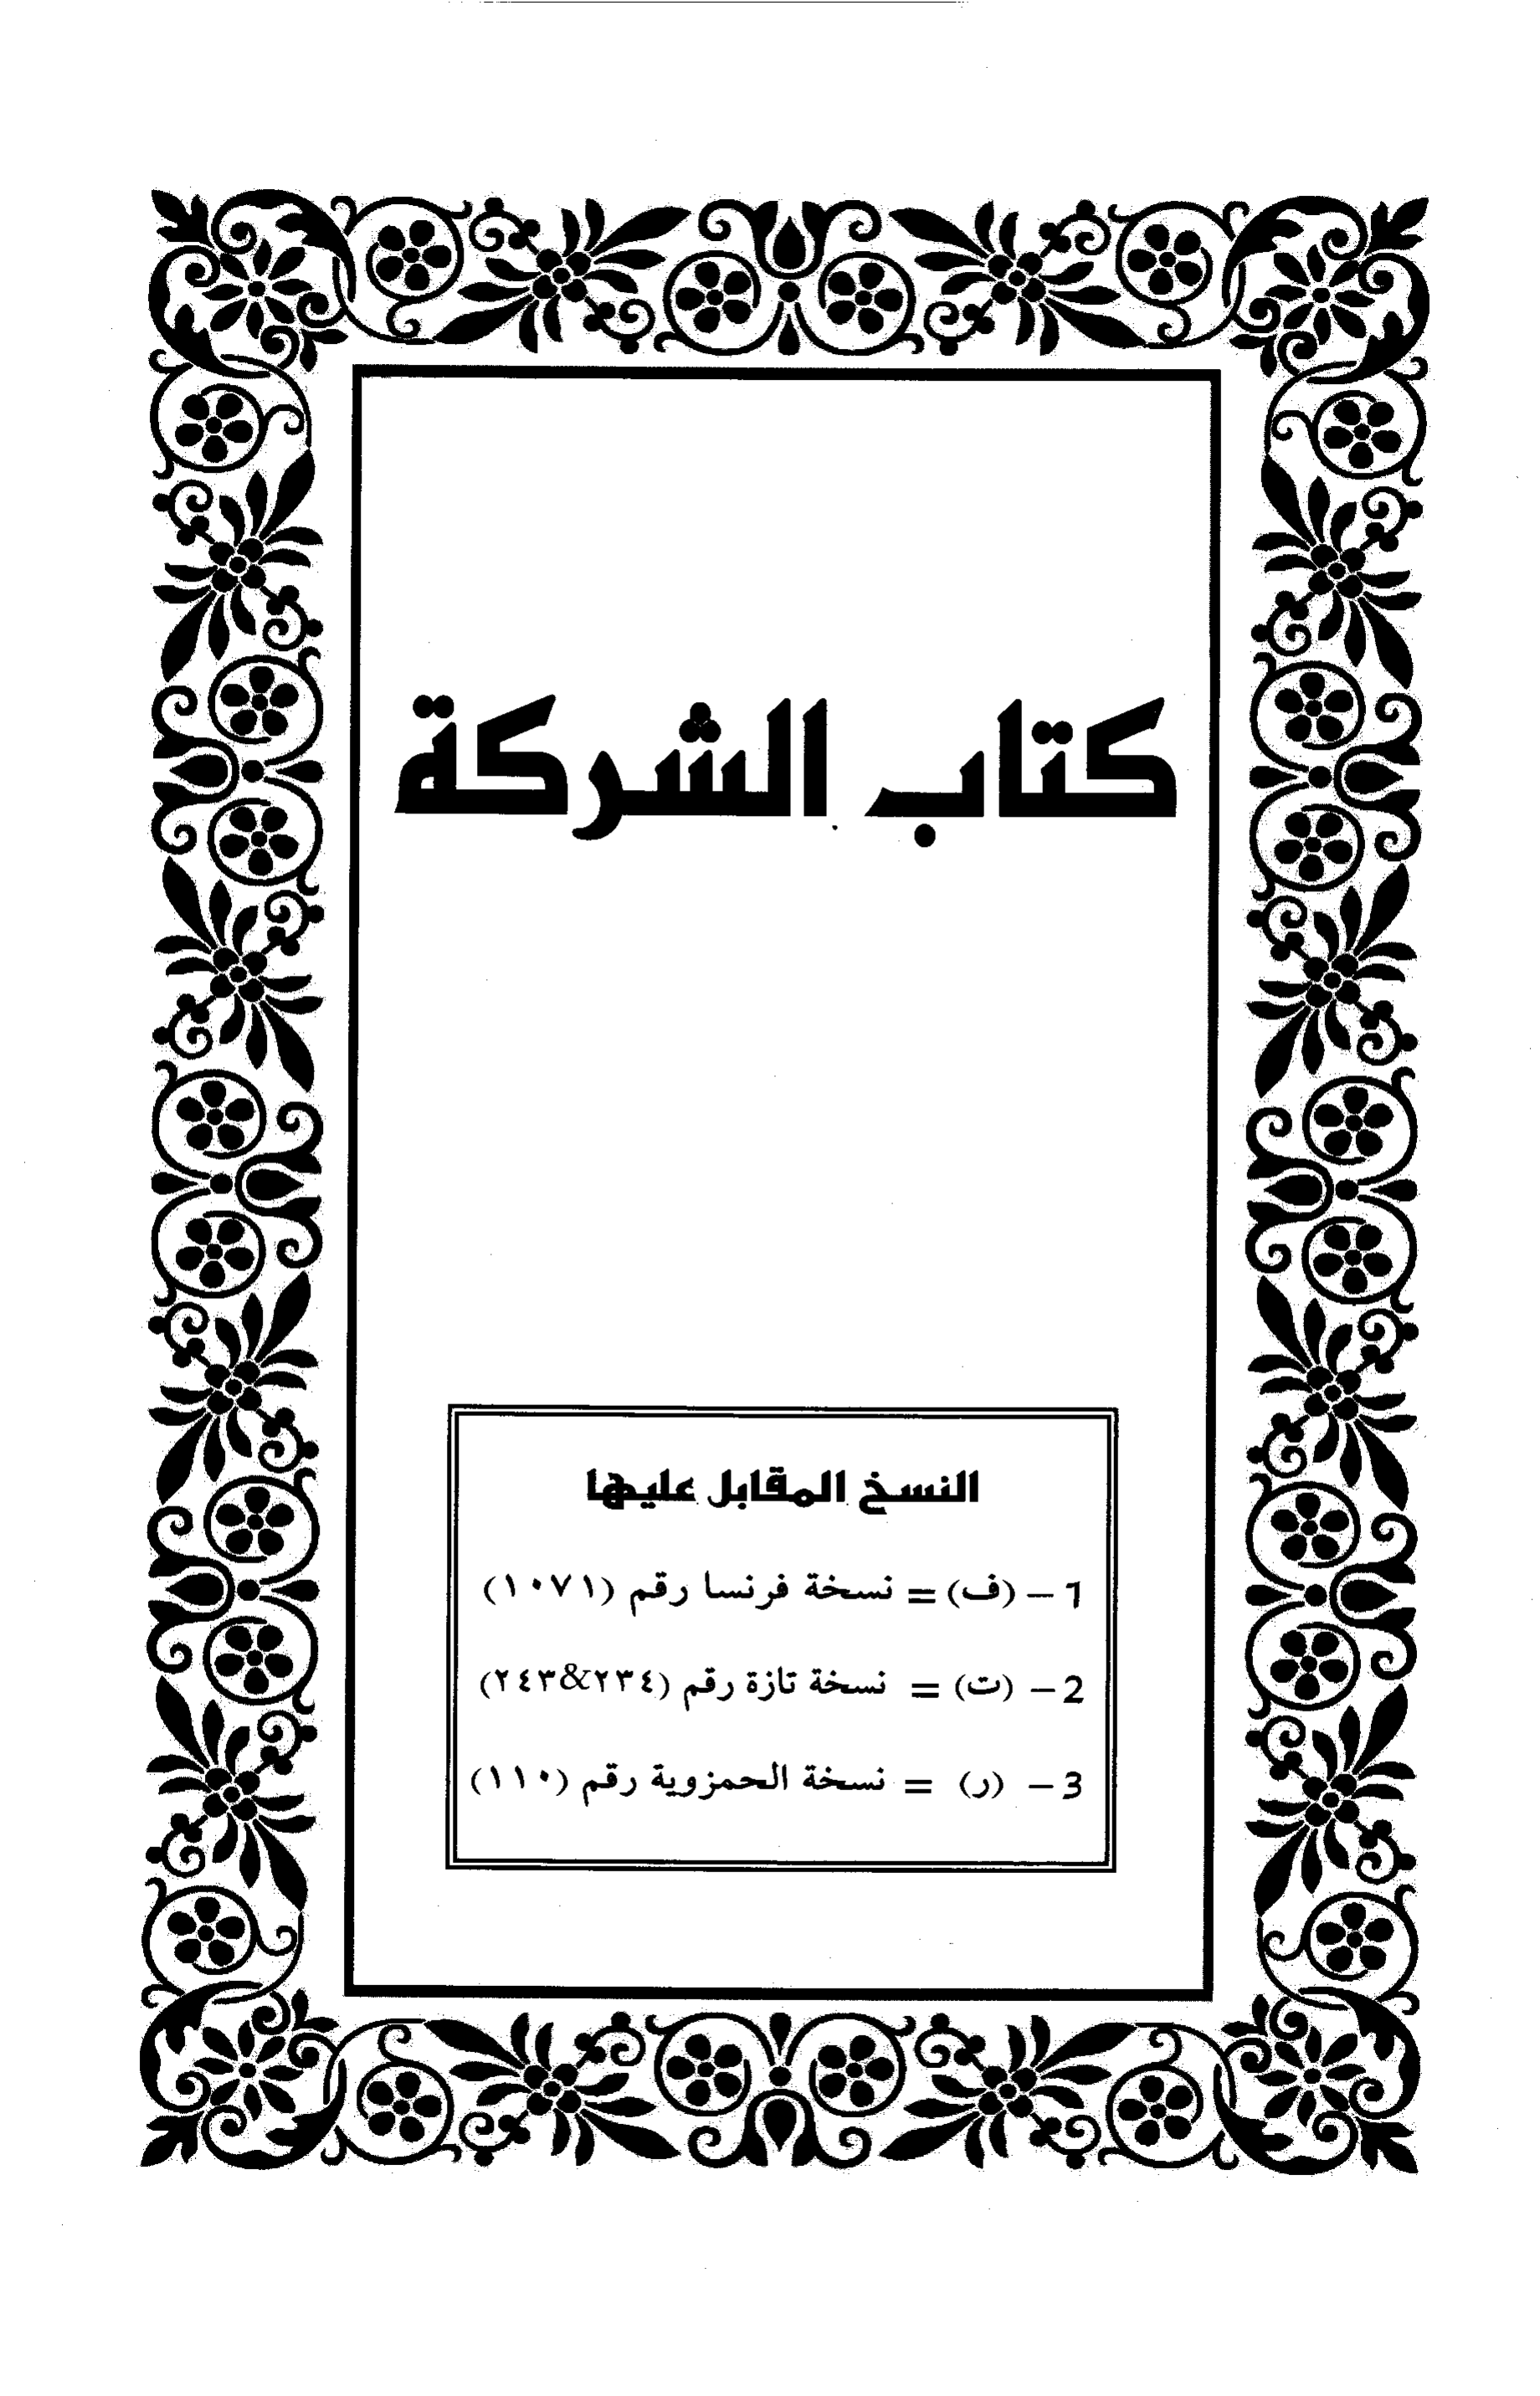 كتاب الشركة
النسخ المقابل عليها
1 - (ف) = نسخة فرنسا رقم (١٠٧١)
2 - (ت) = نسخة تازة رقم (٢٣٤&٢٤٣)
3 - (ر) = نسخة الحمزوية رقم (١١٠)